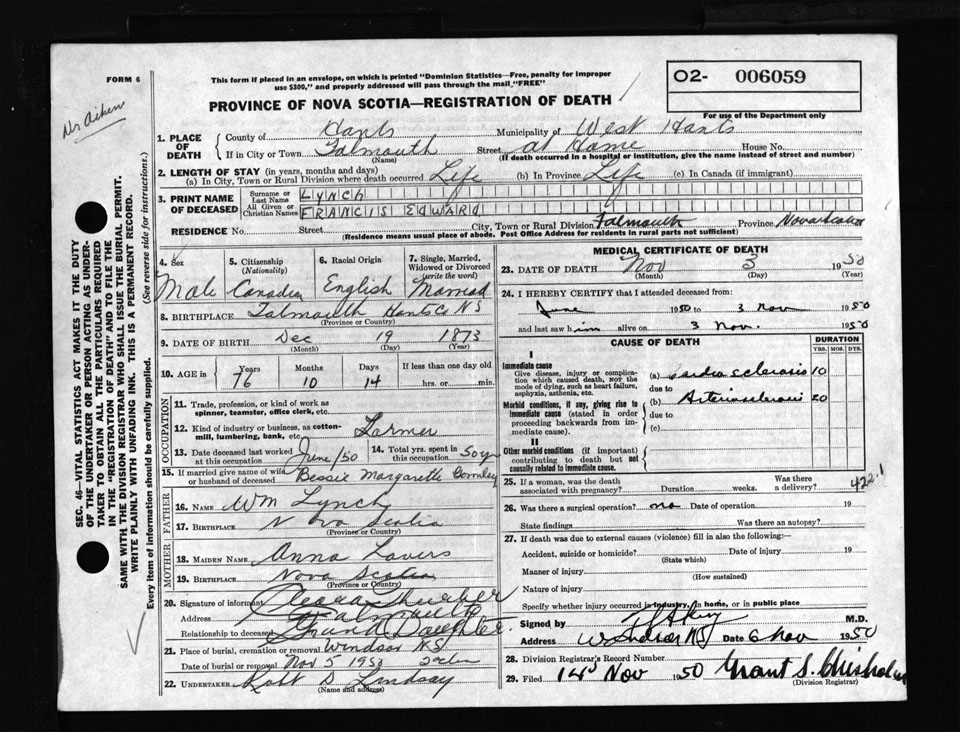 FORM 6
This form if placed in an envelope, on which is printed "Dominion Statistics—Free, penalty for improper
use $300," and properly addressed will pass through the mail "FREE"
O2- 006059
For use of the Department only
PROVINCE OF NOVA SCOTIA—REGISTRATION OF DEATH
Dr Aiken
SEC. 46—VITAL STATISTICS ACT MAKES IT THE DUTY
OF THE UNDERTAKER OR PERSON ACTING AS UNDER-
TAKER TO OBTAIN ALL THE PARTICULARS REQUIRED
IN THE "REGISTRATION OF DEATH" AND TO FILE THE
SAME WITH THE DIVISION REGISTRAR WHO SHALL ISSUE THE BURIAL PERMIT.
WRITE PLAINLY WITH UNFADING INK. THIS IS A PERMANENT RECORD.
Every item of information should be carefully supplied. (See reverse side for instructions.)
1. PLACE OF DEATH
County of Hants Municipality of West Hants
If in City or Town Falmouth Street at Home House No.
(Name) (If death occurred in a hospital or institution, give the name instead of street and number)
2. LENGTH OF STAY (in years, months and days)
(a) In City, Town or Rural Division where death occurred Life (b) In Province Life (c) In Canada (if immigrant)
3. PRINT NAME OF DECEASED
Surname or Last Name LYNCH
All Given or Christian Names FRANCIS EDWARD
RESIDENCE No. Street City, Town or Rural Division Falmouth Province Nova Scotia
(Residence means usual place of abode. Post Office Address for residents in rural parts not sufficient)
4. Sex Male
5. Citizenship (Nationality) Canadian
6. Racial Origin English
7. Single, Married, Widowed or Divorced (write the word) Married
8. BIRTHPLACE Falmouth Hants Co NS
(Province or Country)
9. DATE OF BIRTH Dec 19 1873
(Month) (Day) (Year)
10. AGE in Years 76 Months 10 Days 14 If less than one day old
hrs. or min.
OCCUPATION
11. Trade, profession, or kind of work as
spinner, teamster, office clerk, etc.
12. Kind of industry or business, as cotton-
mill, lumbering, bank, etc. Farmer
13. Date deceased last worked at this occupation June/50
14. Total yrs. spent in this occupation 50 yr
15. If married give name of wife or husband of deceased Bessie Margarette
FATHER
16. NAME Wm Lynch
17. BIRTHPLACE Nova Scotia
(Province or Country)
MOTHER
18. MAIDEN NAME Anna Lavers
19. BIRTHPLACE Nova Scotia
(Province or Country)
20. Signature of informant
Address Falmouth
Relationship to deceased Grand Daughter.
21. Place of burial, cremation or removal Windsor NS
Date of burial or removal Nov 5 1950
22. UNDERTAKER D Lindsay
(Name and address)
MEDICAL CERTIFICATE OF DEATH
23. DATE OF DEATH Nov 3 1950
(Month) (Day) (Year)
24. I HEREBY CERTIFY that I attended deceased from:
June 1950 to 3 Nov 1950
and last saw him alive on 3 Nov. 1950
CAUSE OF DEATH
DURATION
YRS. MOS. DYS.
I
Immediate cause
Give disease, injury or complica-
tion which caused death, NOT the
mode of dying, such as heart failure,
asphyxia, asthenia, etc.
(a) Cardio Sclerosis 10
due to
Morbid conditions, if any, giving rise to
immediate cause (stated in order
proceeding backwards from im-
mediate cause).
(b) Arteriosclerosis 20
due to
(c)
II
Other morbid conditions (if important)
contributing to death but not
causally related to immediate cause.
422.1
25. If a woman, was the death associated with pregnancy? Duration weeks. Was there a delivery?
26. Was there a surgical operation? no Date of operation 19
State findings Was there an autopsy?
27. If death was due to external causes (violence) fill in also the following:—
Accident, suicide or homicide? Date of injury 19
(State which)
Manner of injury
(How sustained)
Nature of injury
Specify whether injury occurred in industry, in home, or in public place
Signed by M.D.
Address Windsor NS Date 6 Nov 1950
28. Division Registrar's Record Number
29. Filed 14 Nov 1950 Grant S. Chisholm
(Division Registrar)